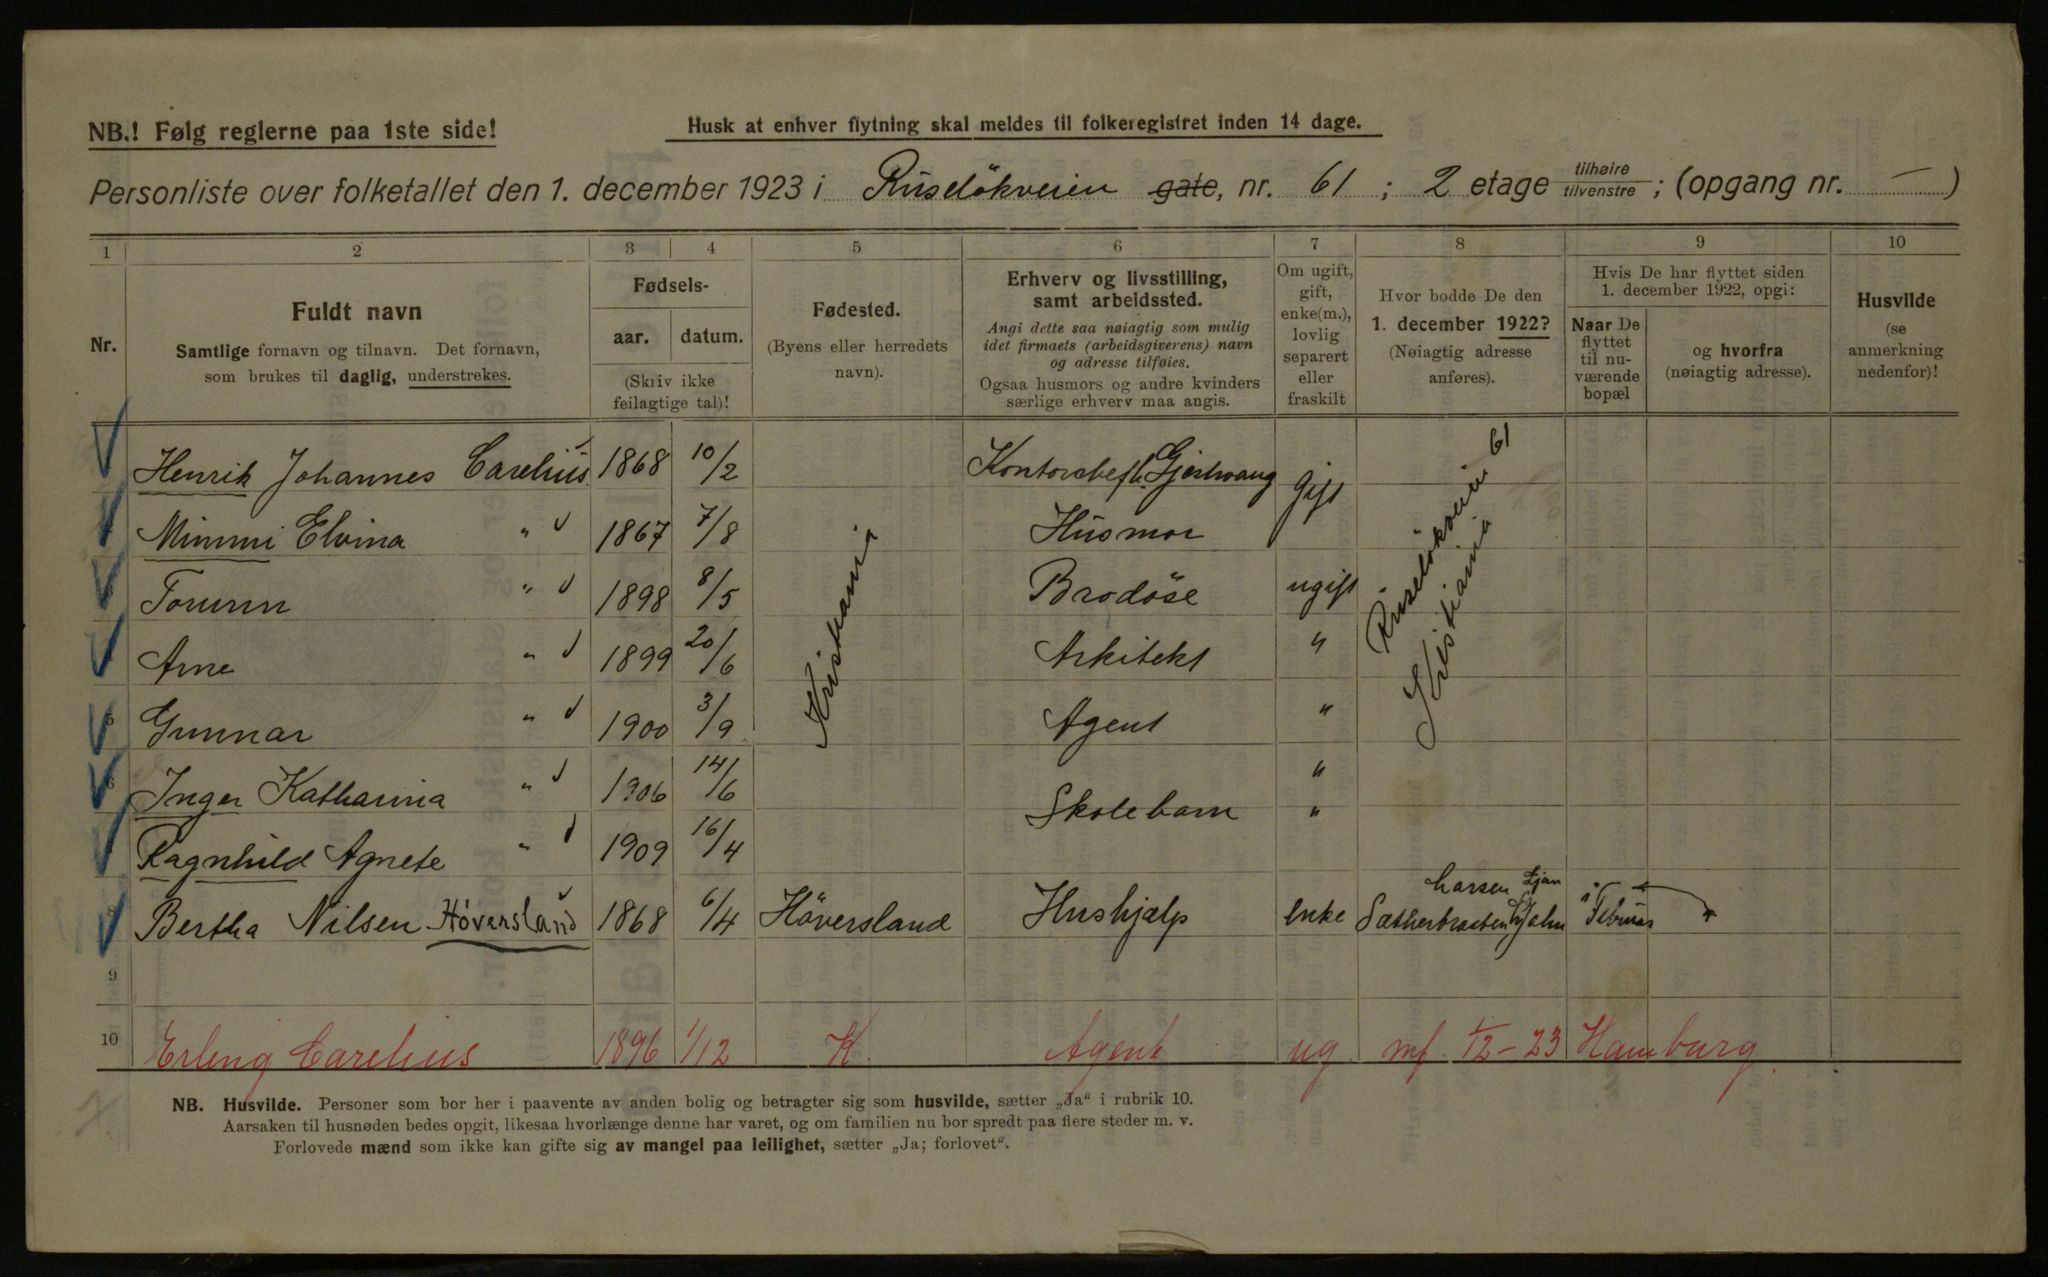 NB.! Følg reglerne paa 1ste side!
Husk at enhver flytning skal meldes til folkeregistret inden 14 dage.
Personliste over folketallet den 1. december 1923 i Ruseløkveien gate, nr. 61 ; 2 etage tilhøire/tilvenstre ; (opgang nr. — )
1 2 3 4 5 6 7 8 9 10
Nr.
Fuldt navn
Samtlige fornavn og tilnavn. Det fornavn,
som brukes til daglig, understrekes.
Fødsels-
aar. datum.
(Skriv ikke
feilagtige tal)!
Fødested.
(Byens eller herredets
navn).
Erhverv og livsstilling,
samt arbeidssted.
Angi dette saa nøiagtig som mulig
idet firmaets (arbeidsgiverens) navn
og adresse tilføies.
Ogsaa husmors og andre kvinders
særlige erhverv maa angis.
Om ugift,
gift,
enke(m.),
lovlig
separert
eller
fraskilt
Hvor bodde De den
1. december 1922?
(Nøiagtig adresse
anføres).
Hvis De har flyttet siden
1. december 1922, opgi:
Naar De
flyttet
til nu-
værende
bopæl
og hvorfra
(nøiagtig adresse).
Husvilde
(se
anmerkning
nedenfor)!
Henrik Johannes Carelius 1868 10/2 Kontorchef Gjift
Mimmi Elvina " 1867 7/8 Husmor
Torunn " 1898 8/5 Brodøse ugift
Arne " 1899 20/6 Arkitekt "
5 Gunnar " 1900 3/9 Agent "
6 Inger Katharina " 1906 14/6 "
Ragnhild Agnete " 1909 16/4 Skolebarn "
Kristiania
Ruseløkveien 61
Kristiania
Larsen Ljan
Bertha Nilsen Höversland 1868 6/4 Höversland Hushjælp enke
9
10 Erling Carelius 1896 1/12 K. Agent ug. mf. 1/12-23 Hamburg.
NB. Husvilde. Personer som bor her i paavente av anden bolig og betragter sig som husvilde, sætter „Ja" i rubrik 10.
Aarsaken til husnøden bedes opgit, likesaa hvorlænge denne har varet, og om familien nu bor spredt paa flere steder m. v.
Forlovede mænd som ikke kan gifte sig av mangel paa leilighet, sætter „Ja; forlovet".